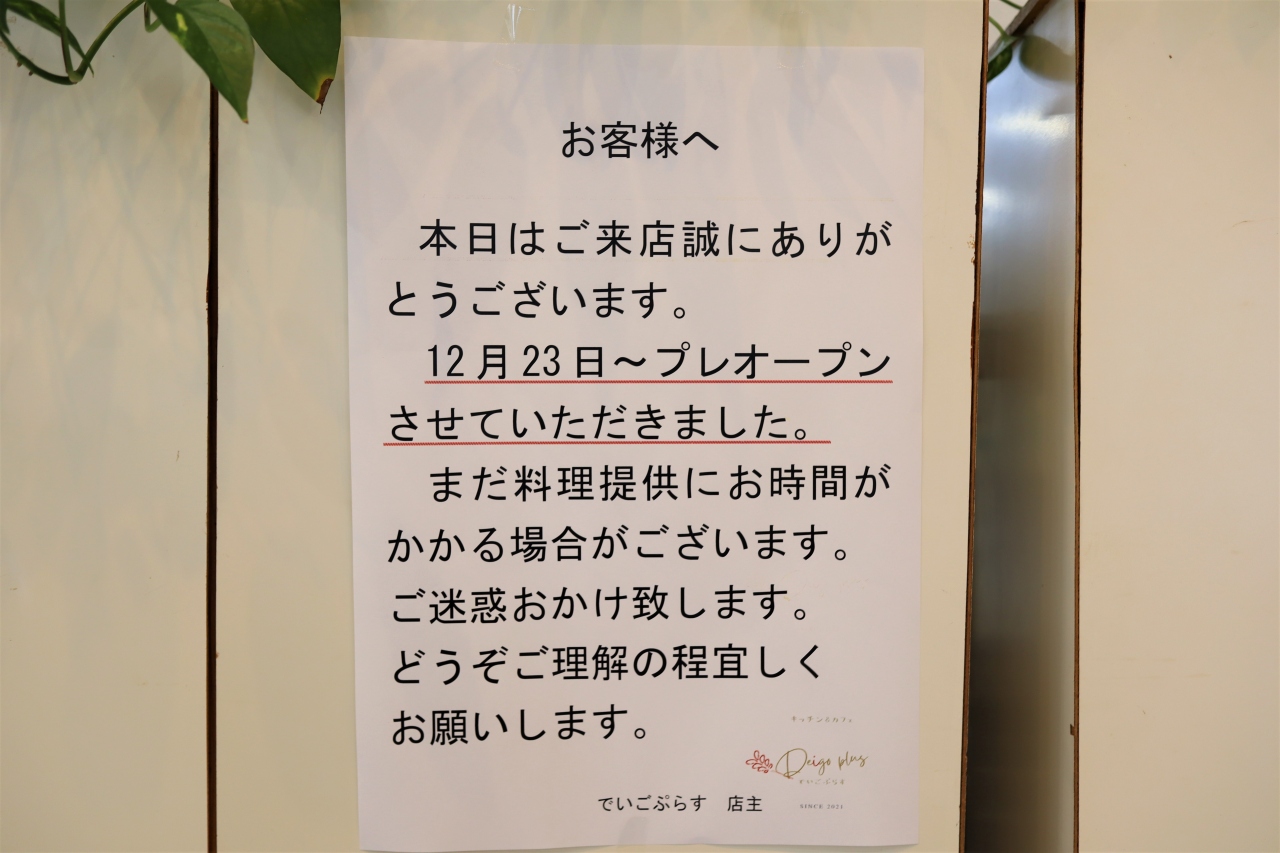 お客様へ
本日はご来店誠にありが
とうございます。
12月23日～プレオープン
させていただきました。
まだ料理提供にお時間が
かかる場合がございます。
ご迷惑おかけ致します。
どうぞご理解の程宜しく
お願いします。
キッチン&カフェ
Deigo plus
でいごぷらす
SINCE 2021
でいごぷらす 店主